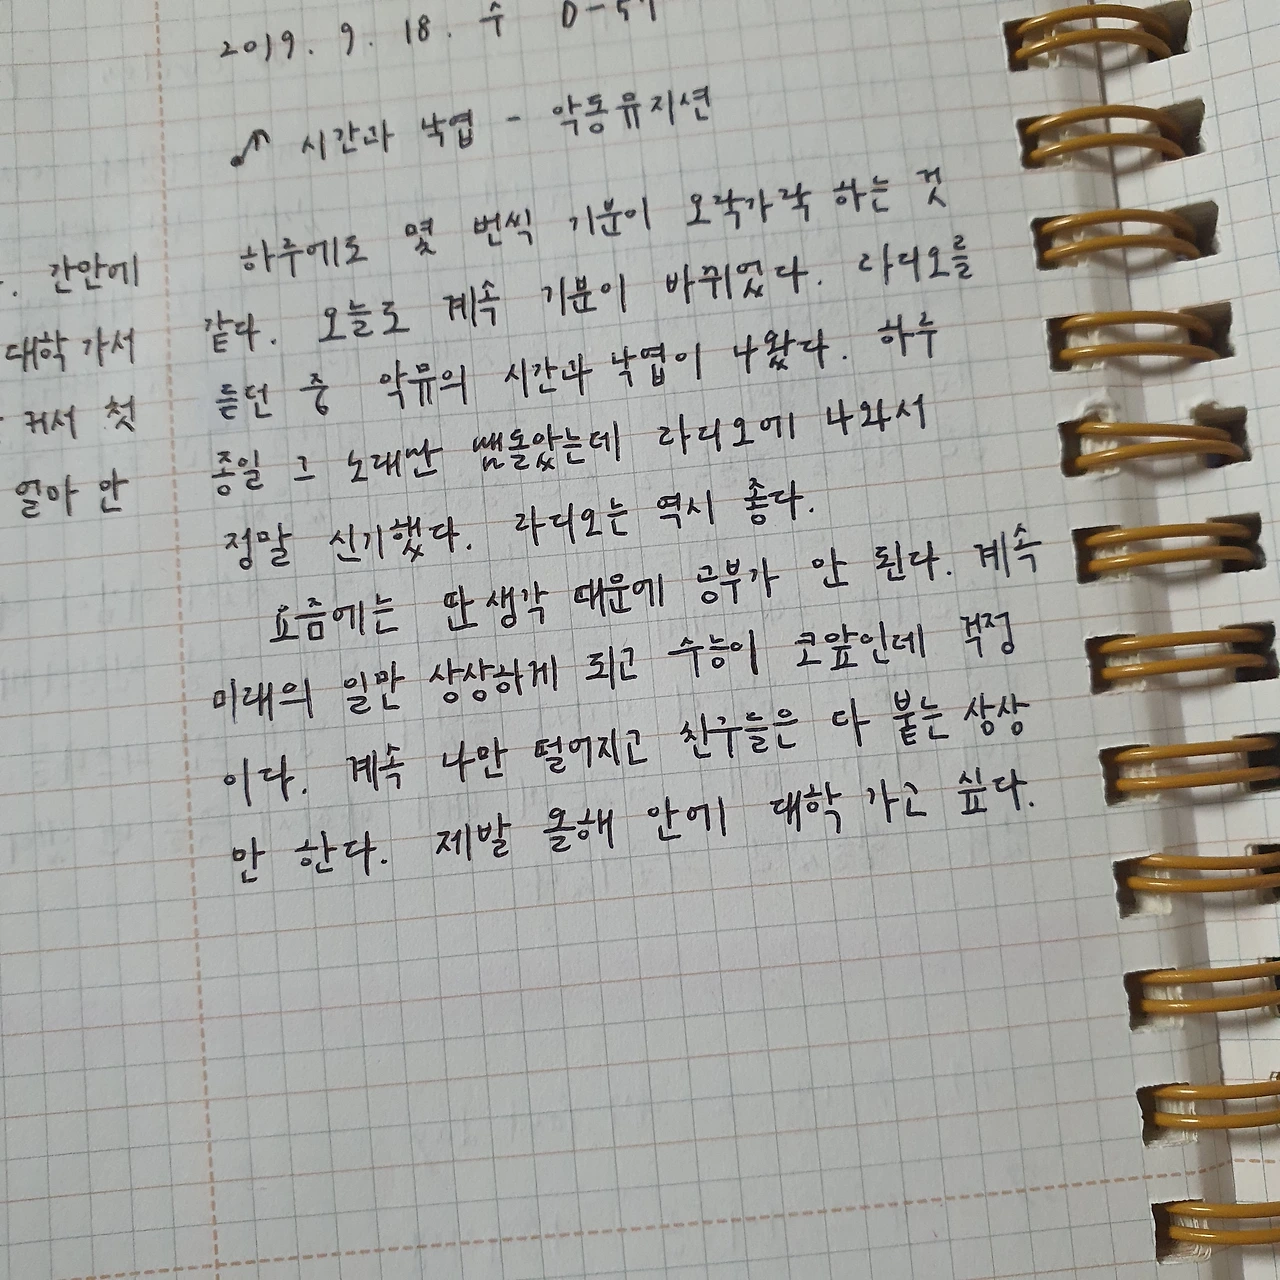 2019. 9. 18. 수 D-57
시간과 낙엽 - 악동뮤지션
하루에도 몇 번씩 기분이 오락가락 하는 것
같다. 오늘도 계속 기분이 바뀌었다. 라디오를
듣던 중 악뮤의 시간과 낙엽이 나왔다. 하루
종일 그 노래만 맴돌았는데 라디오에 나와서
정말 신기했다. 라디오는 역시 좋다.
요즘에는 딴 생각 때문에 공부가 안 된다. 계속
미래의 일만 상상하게 되고 수능이 코앞인데 걱정
이다. 계속 나만 떨어지고 친구들은 다 붙는 상상
안 한다. 제발 올해 안에 대학 가고 싶다.
간안에
대학 가서
커서 첫
얼마 안